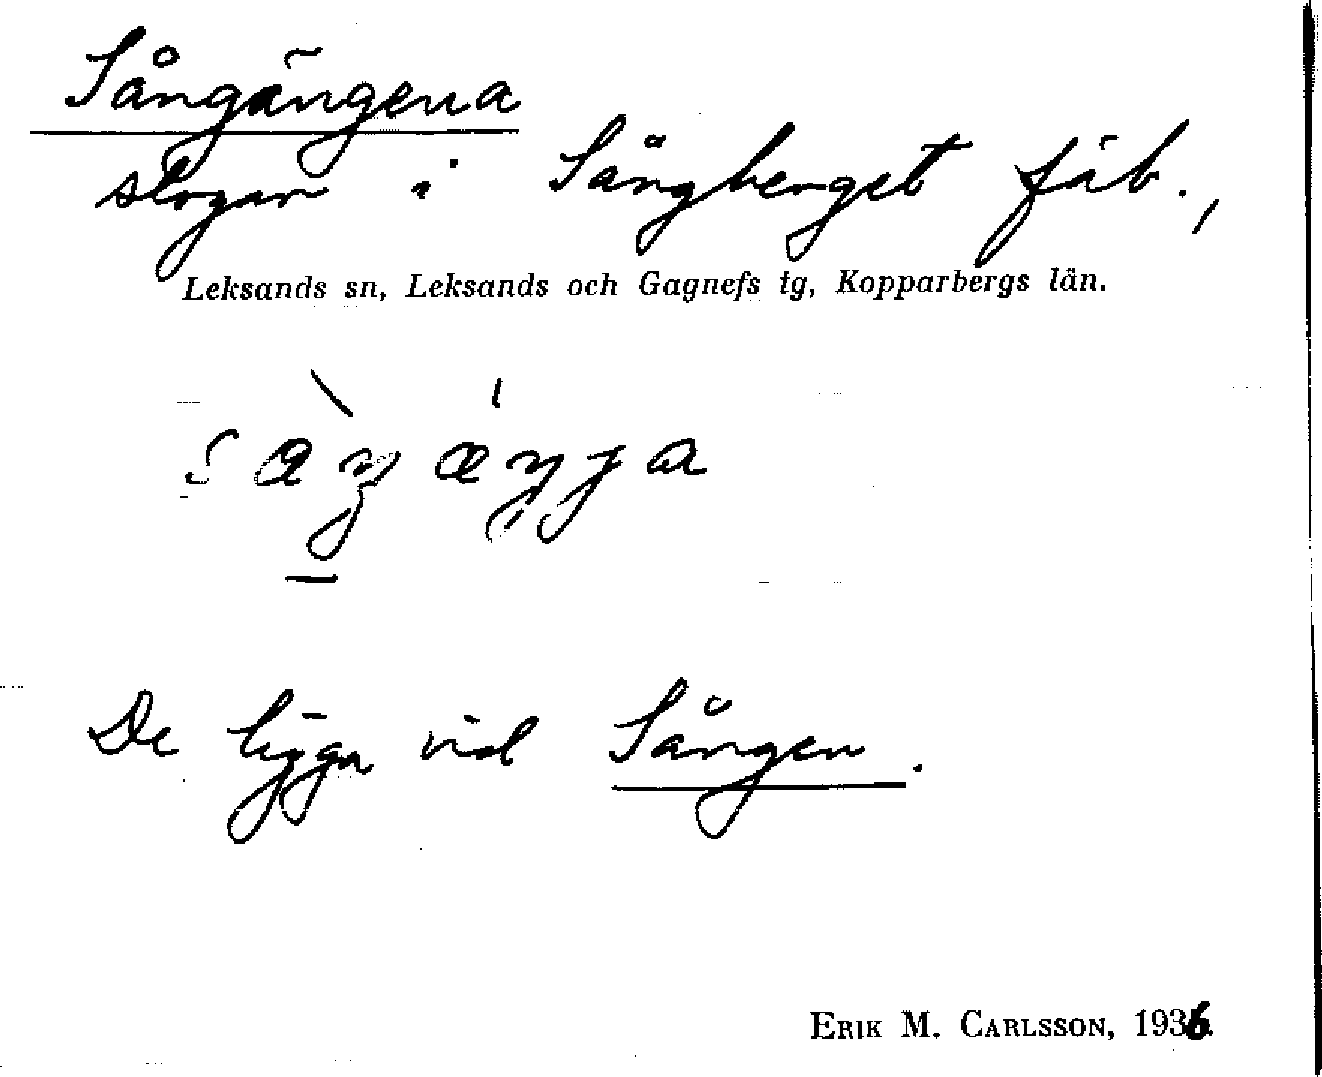 Sångängena
slogar i Sångberget fäb.,
Leksands sn, Leksands och Gagnefs tg, Kopparbergs län.
De ligga vid Sången.
ERIK M. CARLSSON, 1936